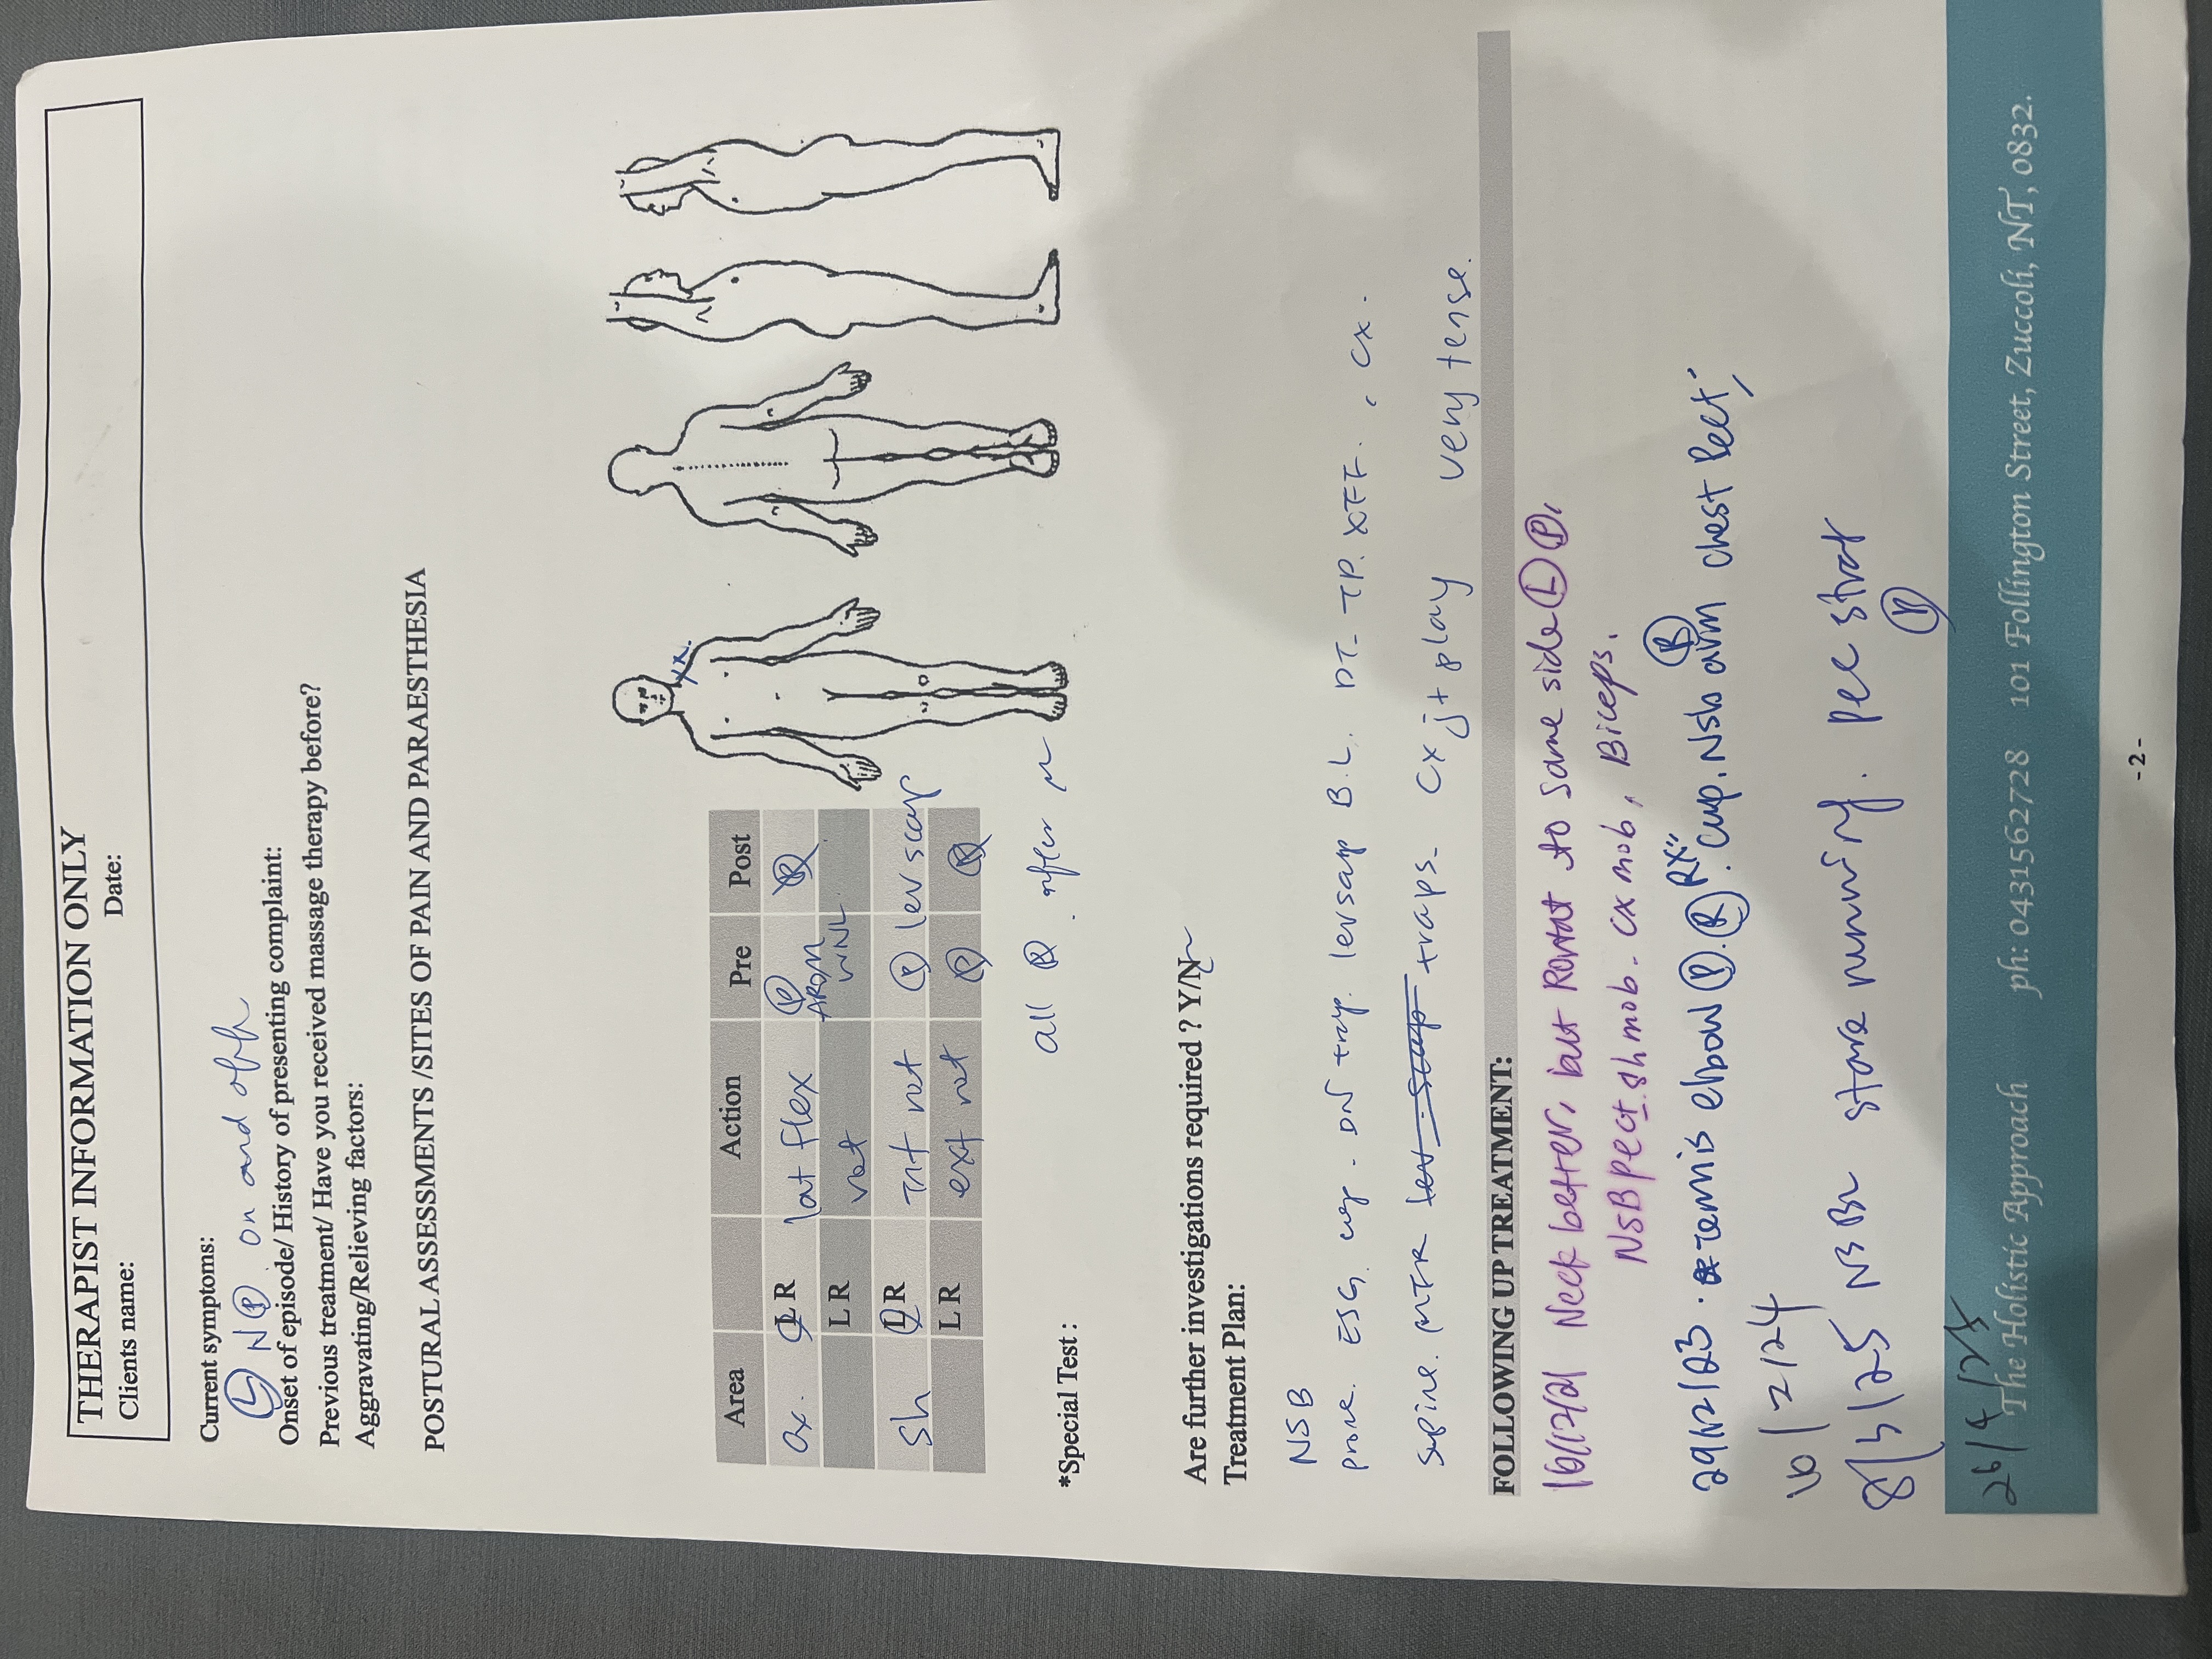 THERAPIST INFORMATION ONLY
Clients name: Date:
Current symptoms:
Ⓛ N Ⓟ. on and off
Onset of episode/ History of presenting complaint:
Previous treatment/ Have you received massage therapy before?
Aggravating/Relieving factors:
POSTURAL ASSESSMENTS /SITES OF PAIN AND PARAESTHESIA
Area Action Pre Post
Cx. L R lat flex Ⓟ
AROM
L R rot WNL
Sh L R Int rot Ⓟ lev scap
L R ext rot Ⓟ
all after
*Special Test :
Are further investigations required ? Y/N
Treatment Plan:
NSB
prone. ESG. cup. DN trap. levscap B.L. DT. TP. XFF. Cx.
supine. MTR traps. Cx jt play very tense.
FOLLOWING UP TREATMENT:
16/12/21 Neck better, but Rotat to same side Ⓛ Ⓟ,
NSB pect. sh mob. cx mob, Biceps.
29/12/23. tennis elbow Ⓟ. Ⓡ RX" cup. NSB arm Ⓡ chest Pect,
16/2/24
8/3/25 stare running. pec strat
Ⓟ
26/4/25
The Holistic Approach ph: 0431562728 101 Follington Street, Zuccoli, NT, 0832.
-2-